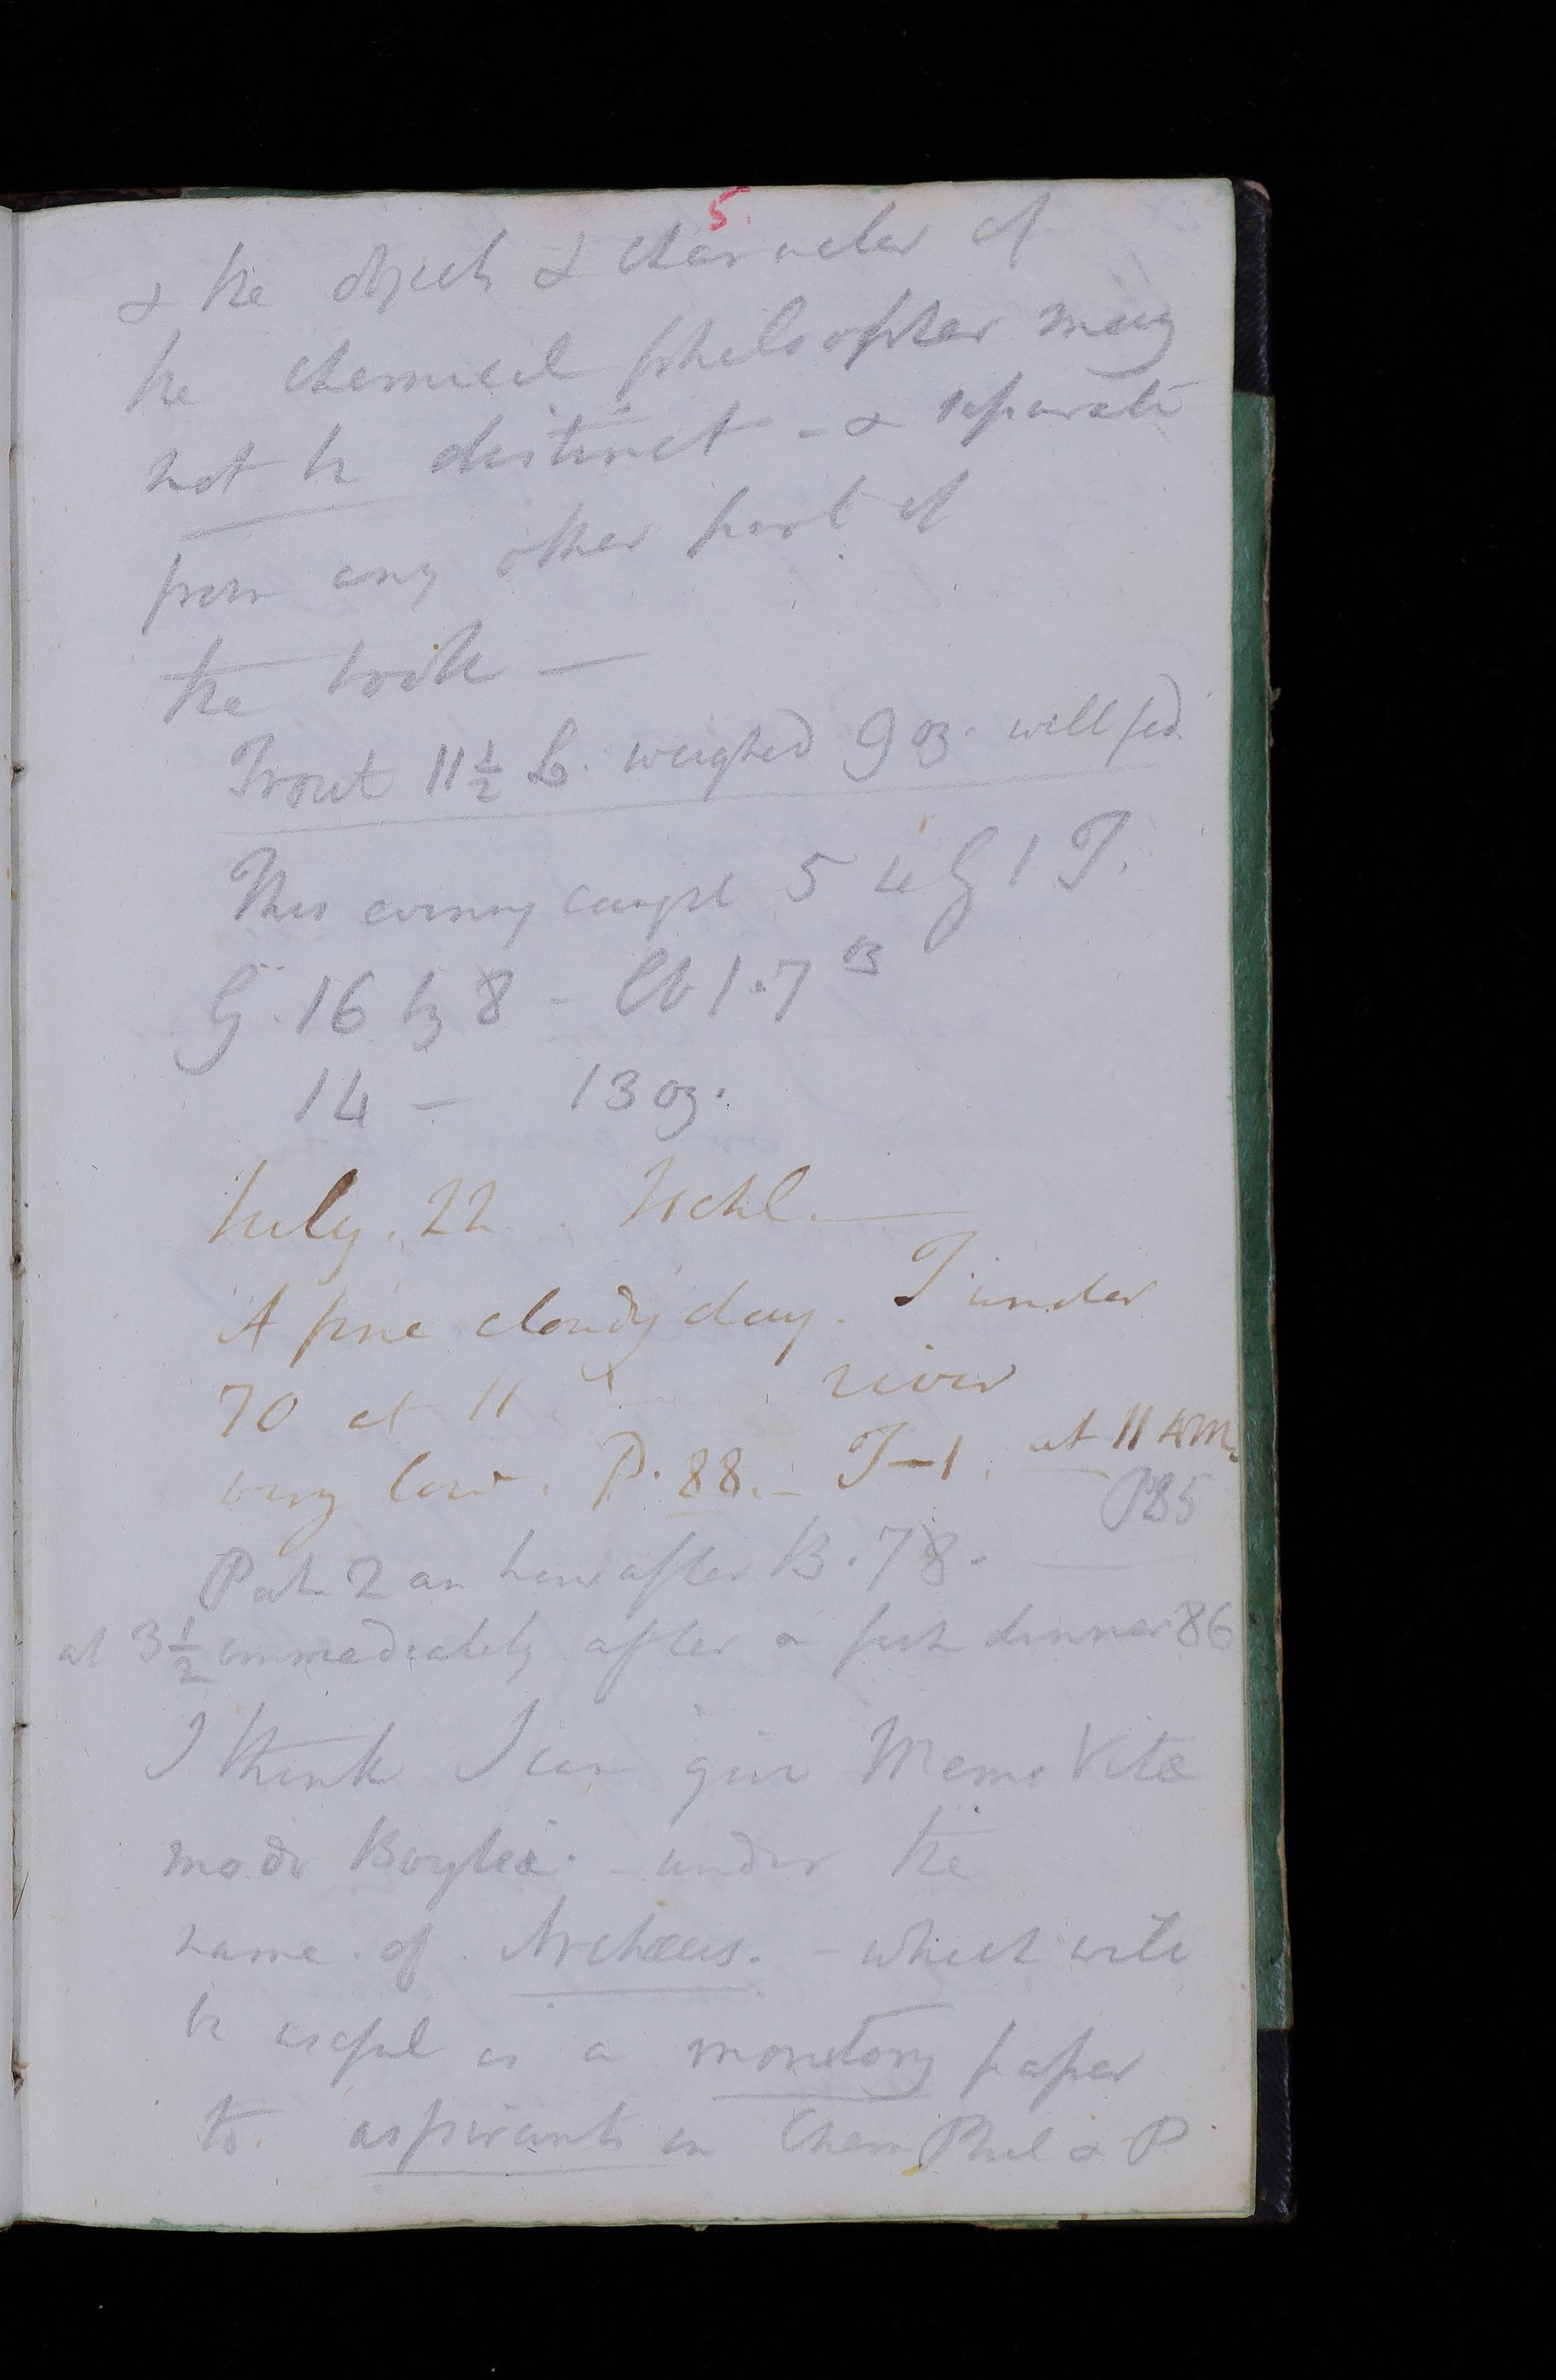 5.
& the object & character of
the chemical philosopher may
not be distinct - & separate
from any other part of
the work —
Trout 11 1/2 L. weighed 9 oz. well fed
This evening caught 5 4 G 1 T.
G. 16 by 8 - lb 1.7 oz
14 - 13 oz.
July. 22. Ischl. —
A fine cloudy day. T under
70 at 11 river
very low. P. 88. - T-1. at 11 AM.
P85
P at 2 an hour after B. 78.
at 3 1/2 immediately after a fish dinner 86
I think I can give Memo Vitæ
modo Boyleii. - under the
name of Archæus. - which will
be useful as a monitory paper
to aspirants in Chem Phil & P